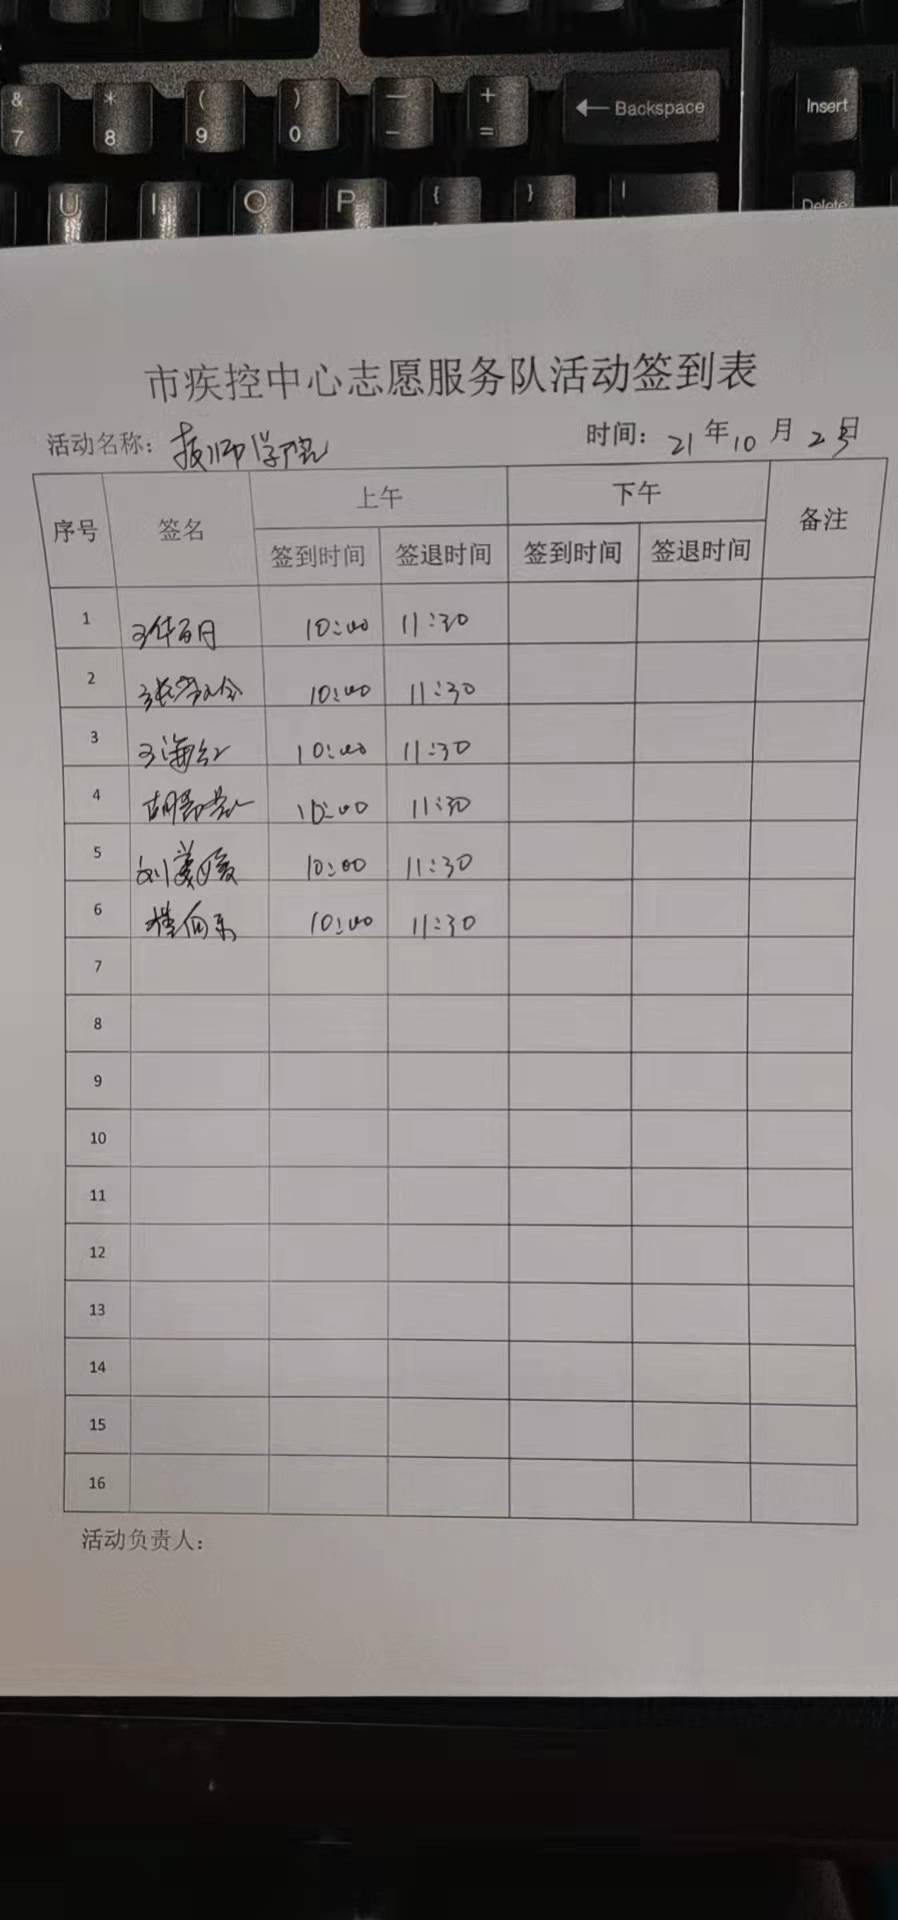 & * ( ) — +
7 8 9 0 - = Backspace Insert
U I O P { } | Delete
市疾控中心志愿服务队活动签到表
活动名称: 技师学院 时间: 21年10月23日
序号 签名 上午 下午 备注
签到时间 签退时间 签到时间 签退时间
1 10:00 11:30
2 10:00 11:30
3 王海红 10:00 11:30
4 10:00 11:30
5 10:00 11:30
6 10:00 11:30
7
8
9
10
11
12
13
14
15
16
活动负责人: